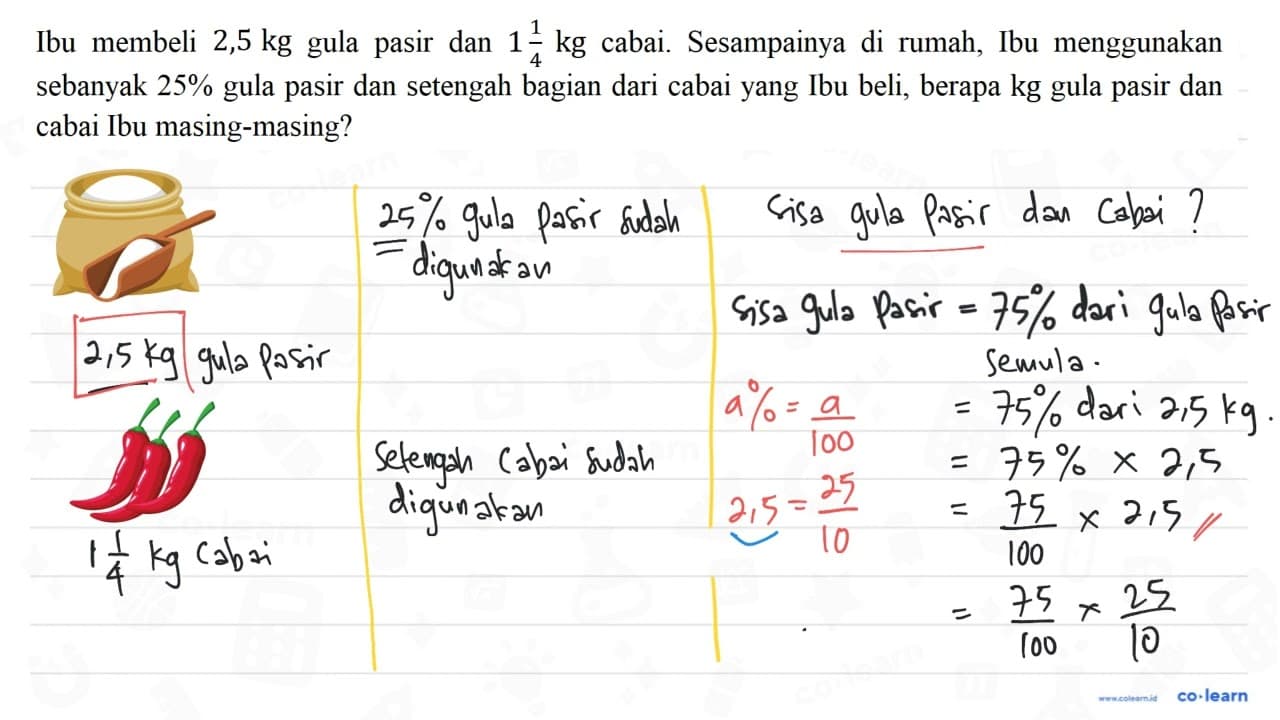 Ibu membeli 2,5 kg gula pasir dan 1 1/4 kg cabai. Sesampainya di rumah, Ibu menggunakan
sebanyak 25% gula pasir dan setengah bagian dari cabai yang Ibu beli, berapa kg gula pasir dan
cabai Ibu masing-masing?
2,5 kg gula pasir
1 1/4 kg cabai
25% gula pasir sudah
digunakan
Setengah cabai sudah
digunakan
Sisa gula pasir dan cabai ?
Sisa gula pasir = 75% dari gula pasir
semula.
= 75% dari 2,5 kg.
= 75% × 2,5
= 75/100 × 2,5
= 75/100 × 25/10
a% = a/100
2,5 = 25/10
www.colearn.id
co·learn